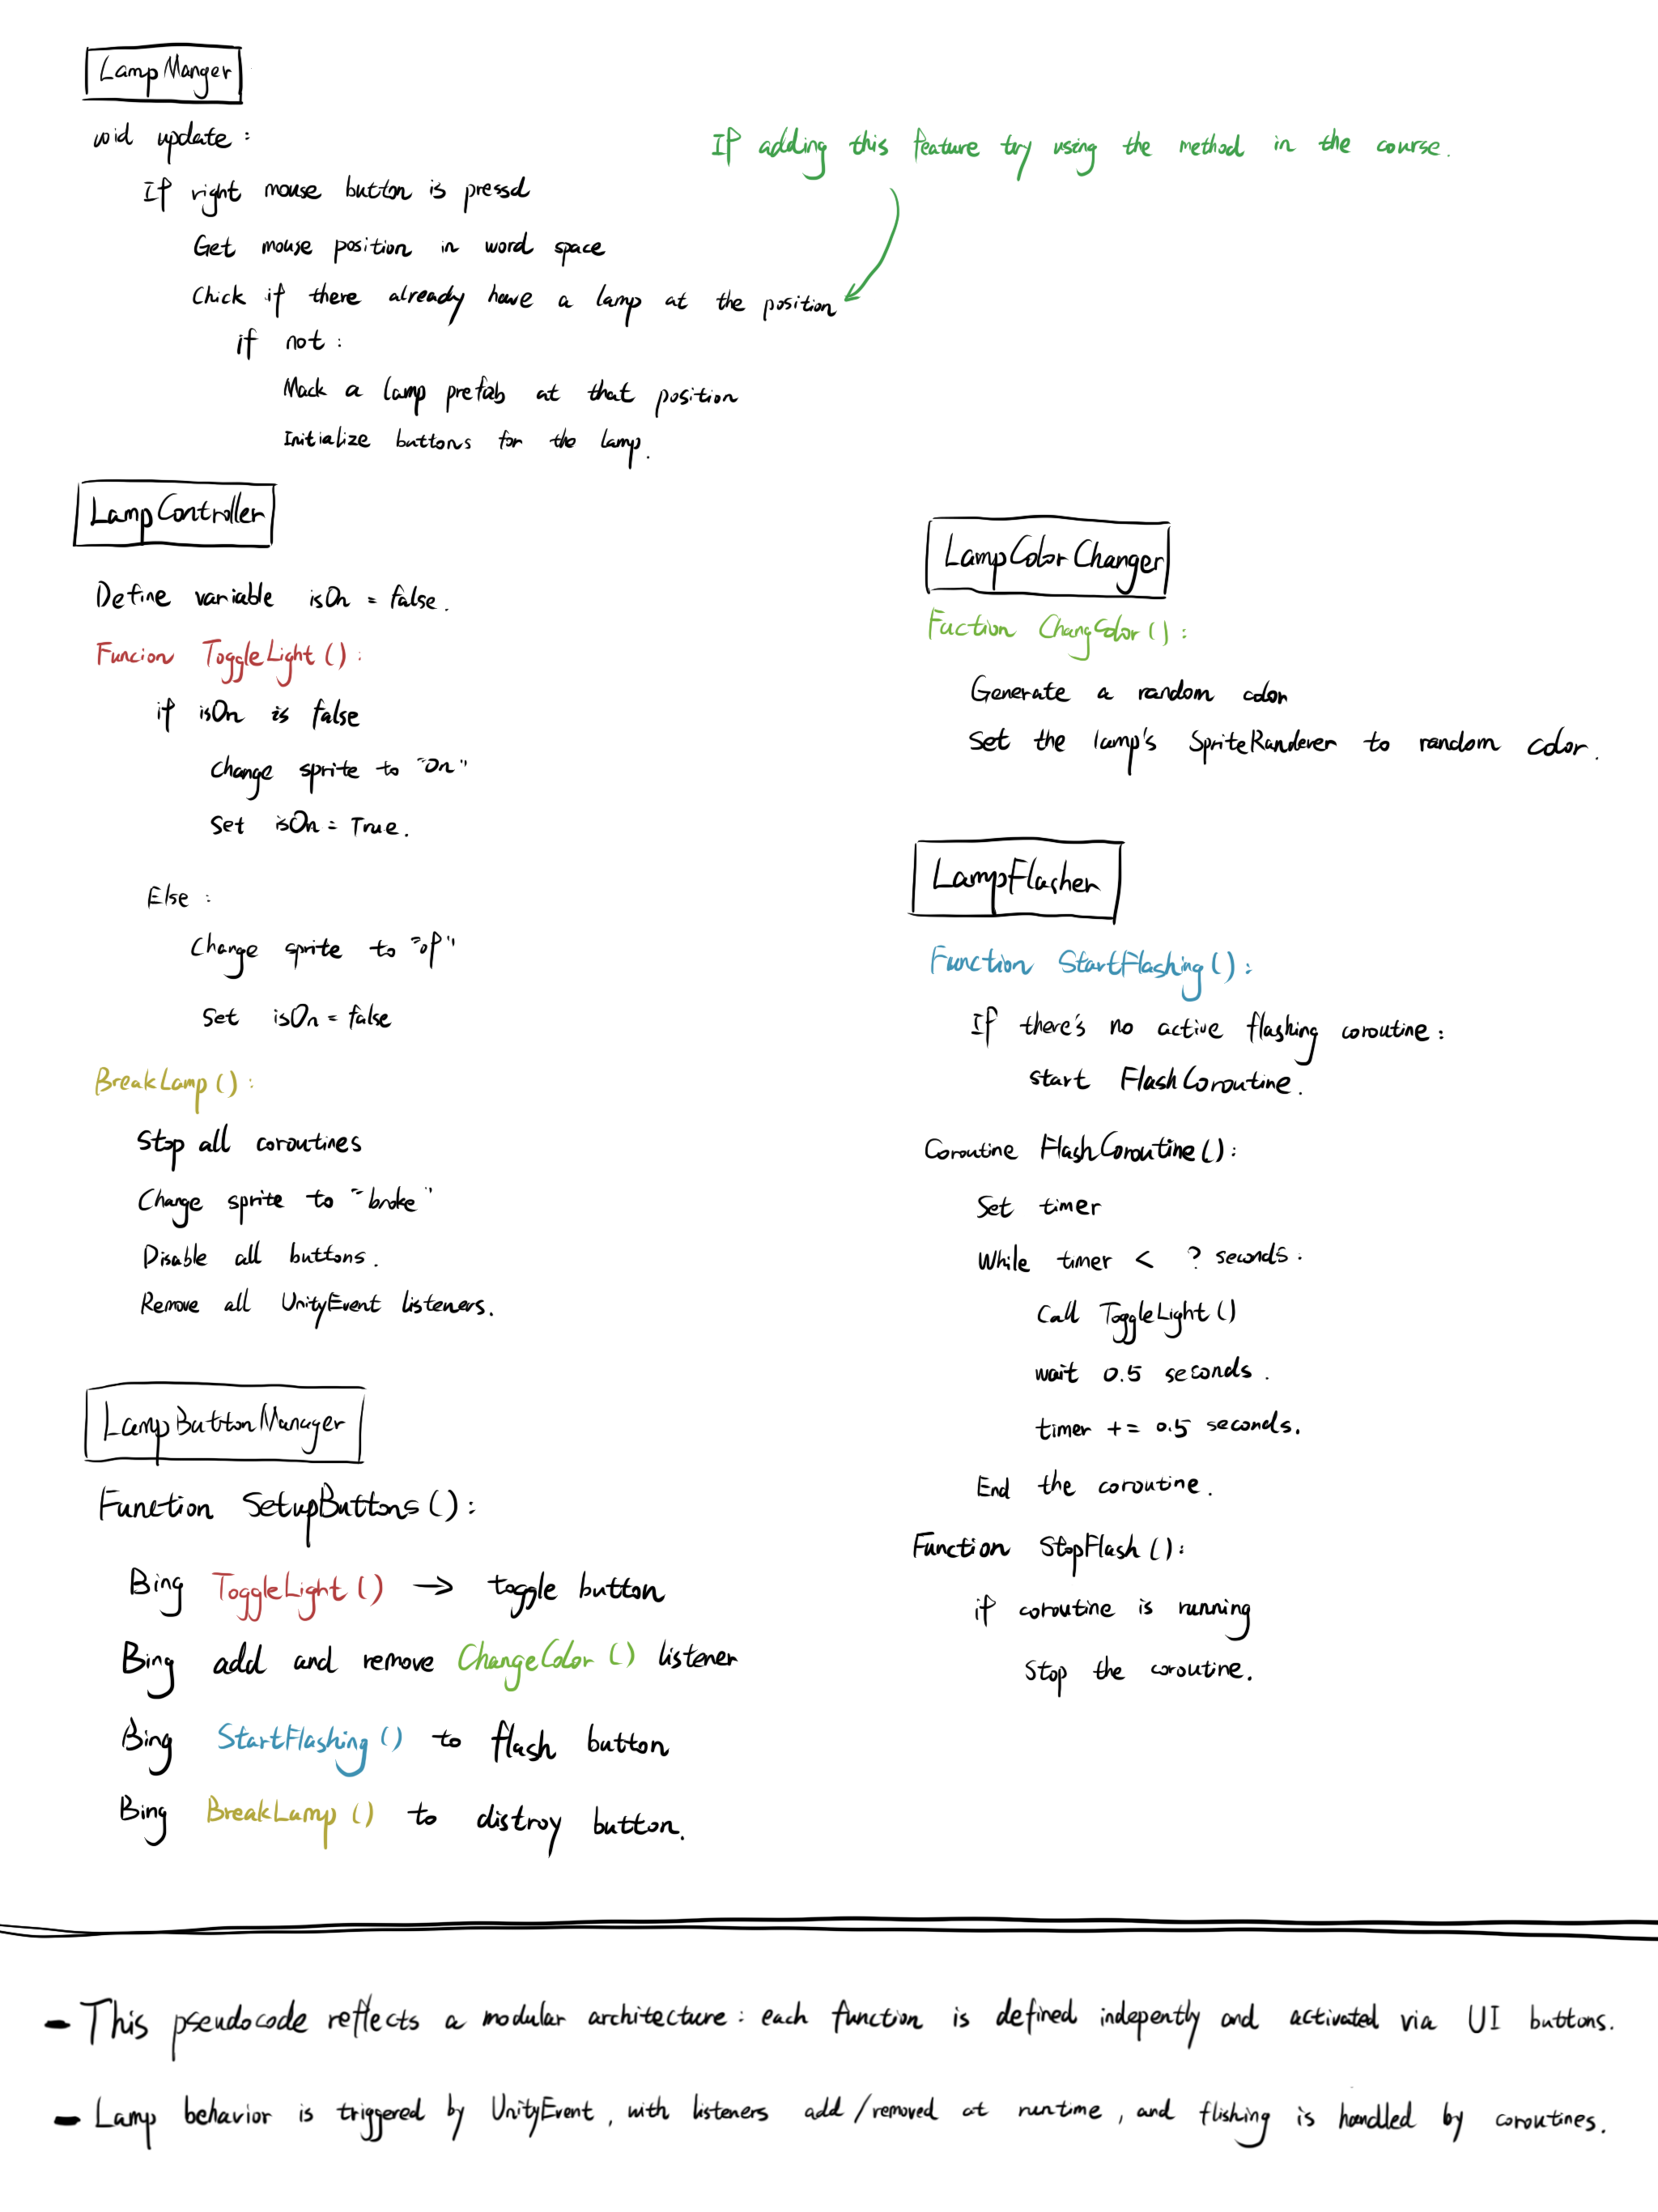 LampManger
void update :
If adding this feature try using the method in the course.
If right mouse button is pressd
Get mouse position in word space
Chick if there already have a lamp at the position
if not :
Mack a lamp prefab at that position
Initialize buttons for the lamp.
LampController
Define variable isOn = false.
Funcion ToggleLight () :
if isOn is false
Change sprite to "On"
Set isOn = True.
Else :
Change sprite to "of"
Set isOn = false
BreakLamp () :
Stop all coroutines
Change sprite to "broke"
Disable all buttons.
Remove all UnityEvent listeners.
LampButtonManager
Function SetupButtons () :
Bing ToggleLight () → toggle button
Bing add and remove ChangeColor () listener
Bing StartFlashing () to flash button
Bing BreakLamp () to distroy button.
LampColorChanger
Fuction ChangColor () :
Generate a random color
Set the lamp's SpriteRanderer to random color.
LampFlasher
Function StartFlashing () :
If there's no active flashing coroutine :
start FlashCoroutine.
Coroutine FlashCoroutine () :
Set timer
While timer < ? seconds :
Call ToggleLight ()
wait 0.5 seconds.
timer += 0.5 seconds.
End the coroutine.
Function StopFlash () :
if coroutine is running
Stop the coroutine.
- This pseudocode reflects a modular architecture : each function is defined indepently and activated via UI buttons.
- Lamp behavior is triggered by UnityEvent, with listeners add/removed at runtime, and flishing is handled by coroutines.